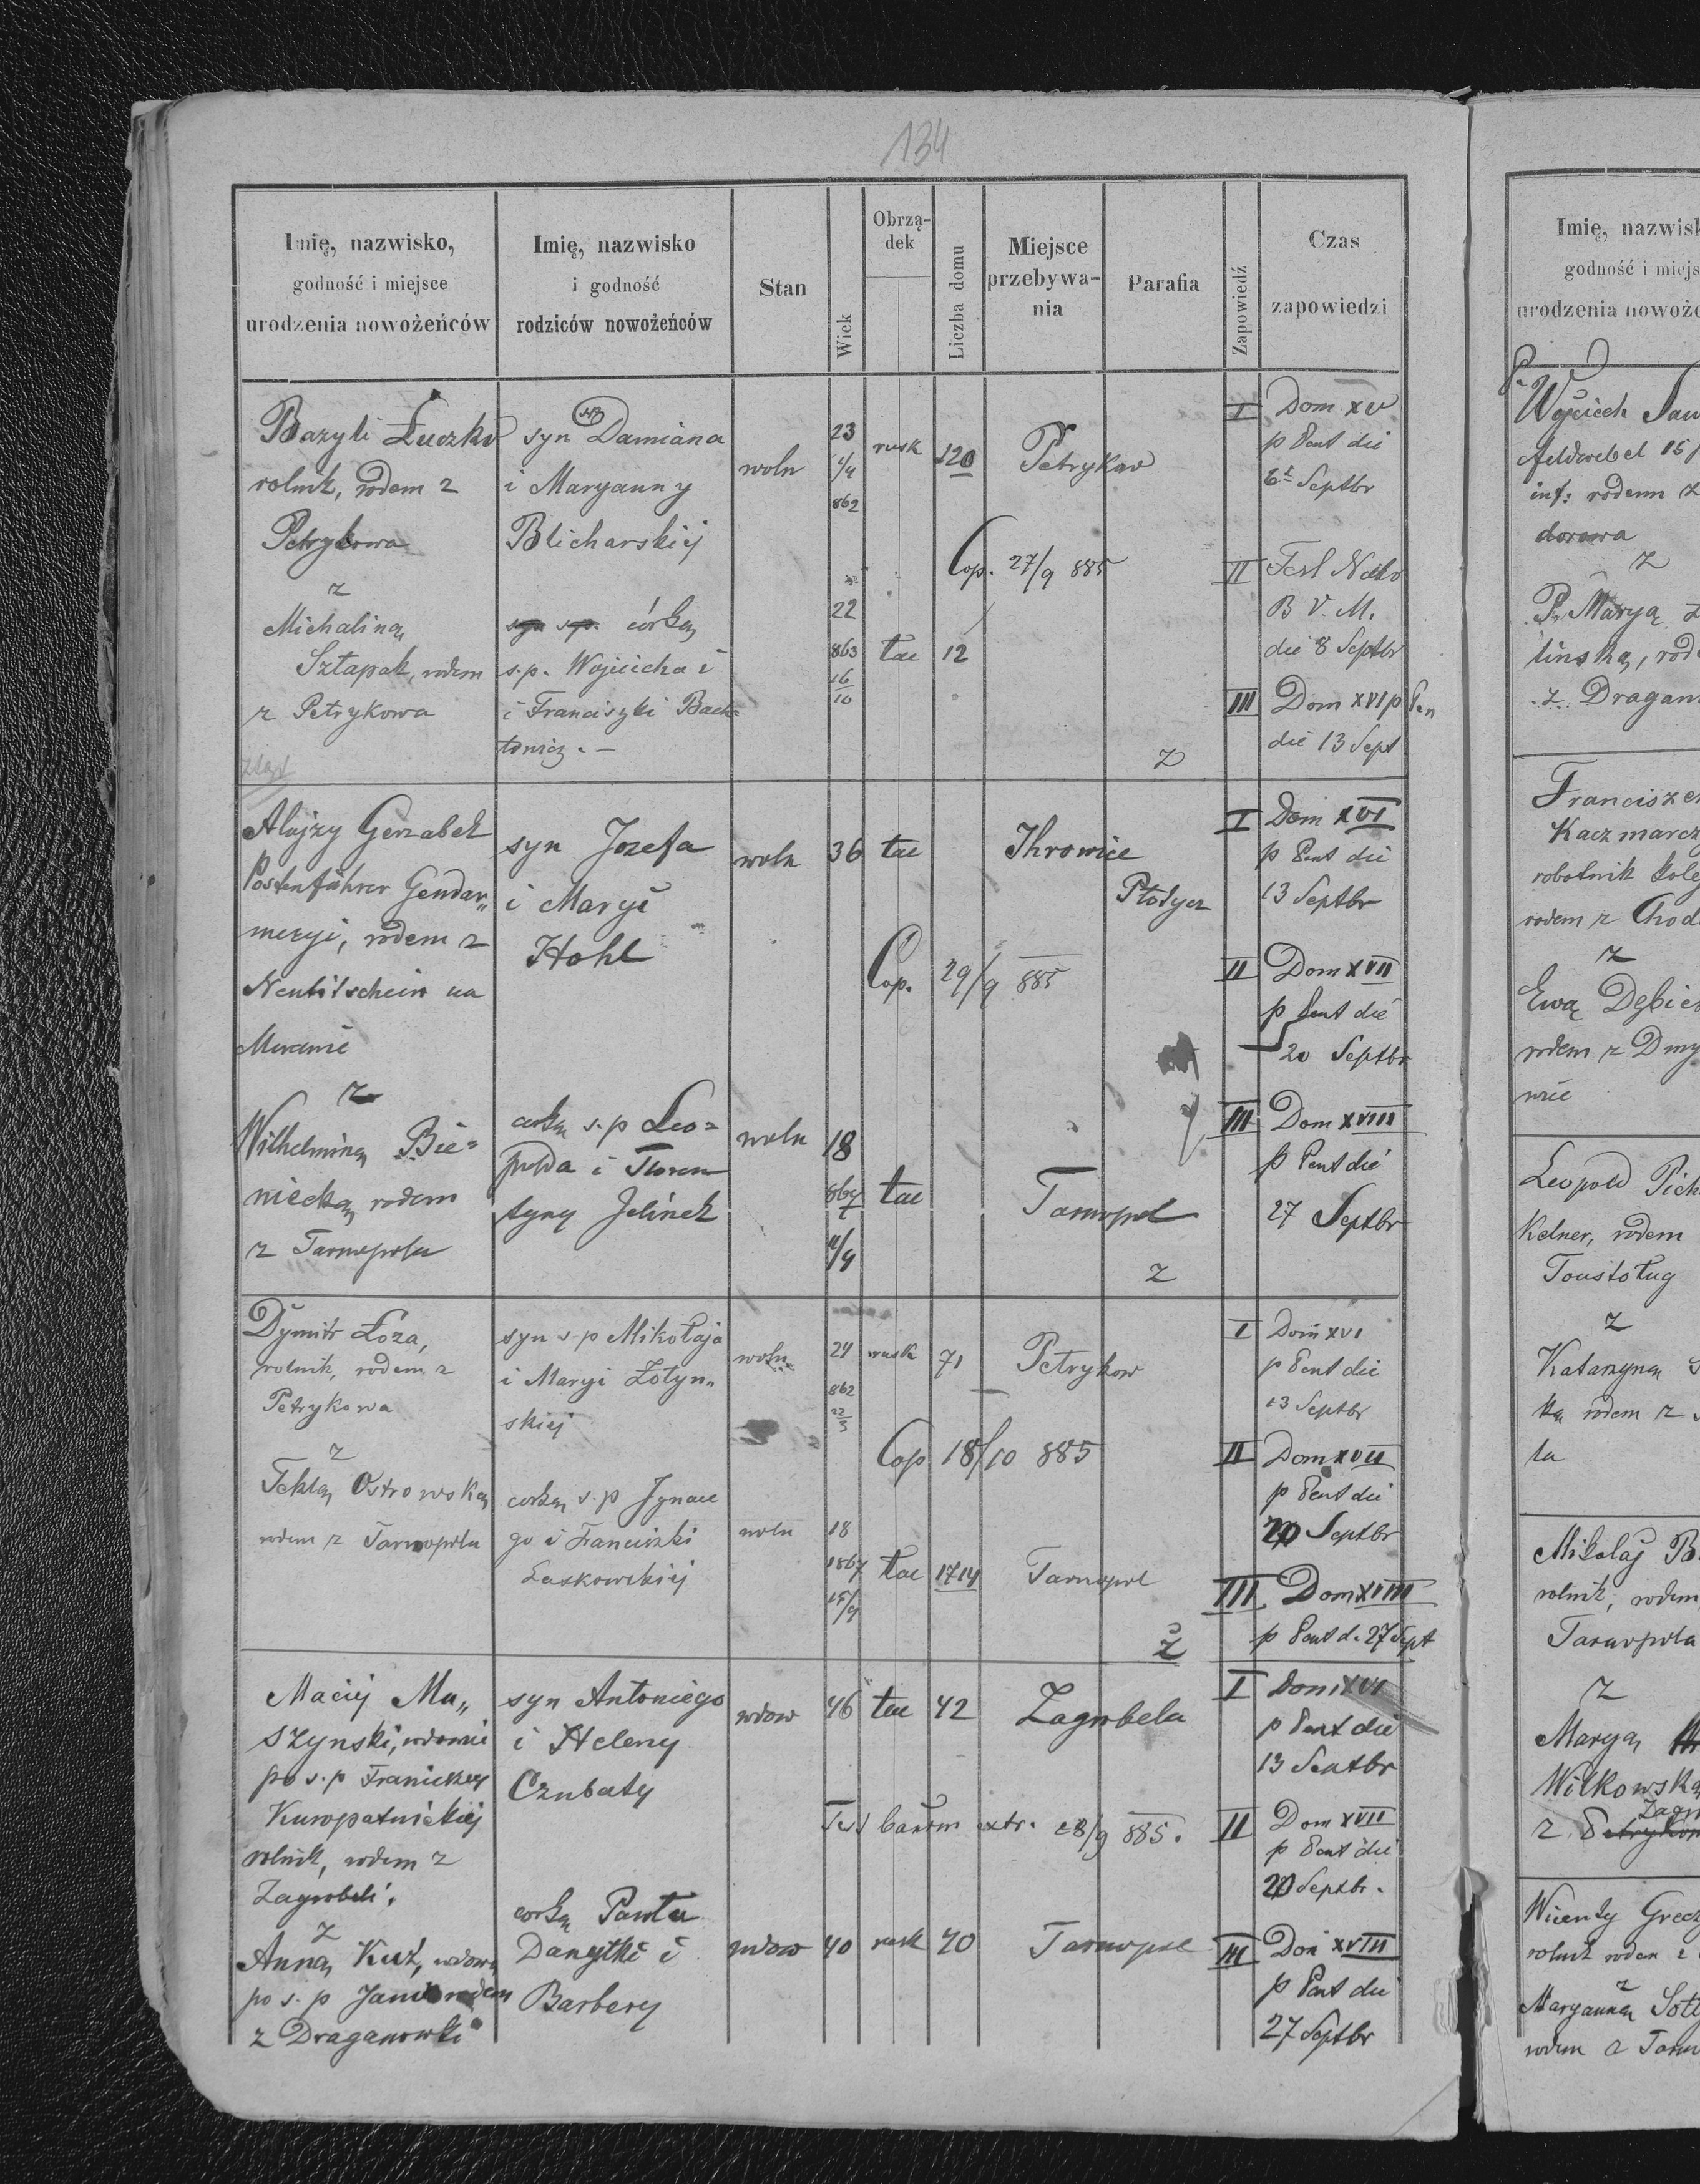 134
Imię, nazwisko,
godność i miejsce
urodzenia nowożeńców
Imię, nazwisko
i godność
rodziców nowożeńców
Stan
Wiek
Obrzą-
dek
Liczba domu
Miejsce
przebywa-
nia
Parafia
Zapowiedź
Czas
zapowiedzi
Bazyli Łuczko
rolnik, rodem z
Petrykowa
z
Michaliną
Sztapak, rodem
z Petrykowa
syn Damiana
i Maryanny
Blicharskiij
syn s.p. córką
s.p. Wojcicha i
i Franciszki Back=
woln
23
862
22
863
16
10
rusk
łac
120
12
Petrykow
Cop. 27/9 885
z
I
Dom XV
p Pent die
6t Septbr
II
Fest Nativ
B V. M.
die 8 Septbr
III
Dom XVI p Pen
die 13 Sept
Alojzy Gerzabek
Postenführer Gendar„
meryi, rodem z
Neutitschein na
z
Wilhelminą Bie=
niecką rodem
z Tarnopola
syn Jozefa
i Maryi
Hohl
corką s.p Leo=
polda i Floren
tyny Jelinek
woln
woln
36
18
867
łac
łac
Ihrowice
Płotycz
Cop. 29/9 885
Tarnopol
z
I
Dom XVI
p Pent die
13 Septbr
II
Dom XVII
p Pent die
20 Septbr
III
Dom XVIII
p Pent die
27 Septbr
Dymitr Łoza,
rolnik, rodem z
Petrykowa
z
Teklą Ostrowską
rodem z Tarnopola
syn s.p Mikołaja
i Maryi Żołyn„
skiej
corką s.p Ignace
go i Franciszki
Laskowskiij
woln
woln
24
862
22
3
18
1867
15/9
rusk
łac
71
1714
Petrykow
Cop 18/10 885
Tarnopol
z
I
Dom XVI
p Pent die
13 Septbr
II
Dom XVII
p Pent die
20 Septbr
III
Dom XVIII
p Pent d. 27 Sept
Maciij Mu„
szynski, wdowiec
po s.p Franciszcy
Kuropatnickiej
rolnik, rodem z
Zagrobeli.
z
Anną Kuź, wdowa
po s. p Janie rodem
z Draganowki
syn Antoniego
i Heleny
Czubaty
corką Pawła
Danytki i
Barbery
wdow
wdow
46
40
łac
rusk
42
70
Zagrobela
Test bannm extr. 28/9 885.
Tarnopol
I
Dom XVI
p Pent die
13 Septbr
II
Dom XVII
p Pent die
20 Septbr.
III
Dom XVIII
p Pent die
27 Septbr
Imię, nazwisk
godność i miejs
urodzenia nowoże
Wojciech
feldwebel 15
inf: rodem z
z
P. Maryą
z Dragan
Franciszek
Kaczmarcz
robotnik kolej
rodem z Chod
z
Ewą Dębic
rodem z Dmy
Leopold Pich
Kelner, rodem
Toustoług
z
Katarzyną
ką rodem z
la
Mikołaj
rolnik, rodem
Tarnopola
z
Maryą
Wilkowską
z Petrykow
Wicenty Grecz
rolnik rodem z
z
Maryanną
rodem z Tarn